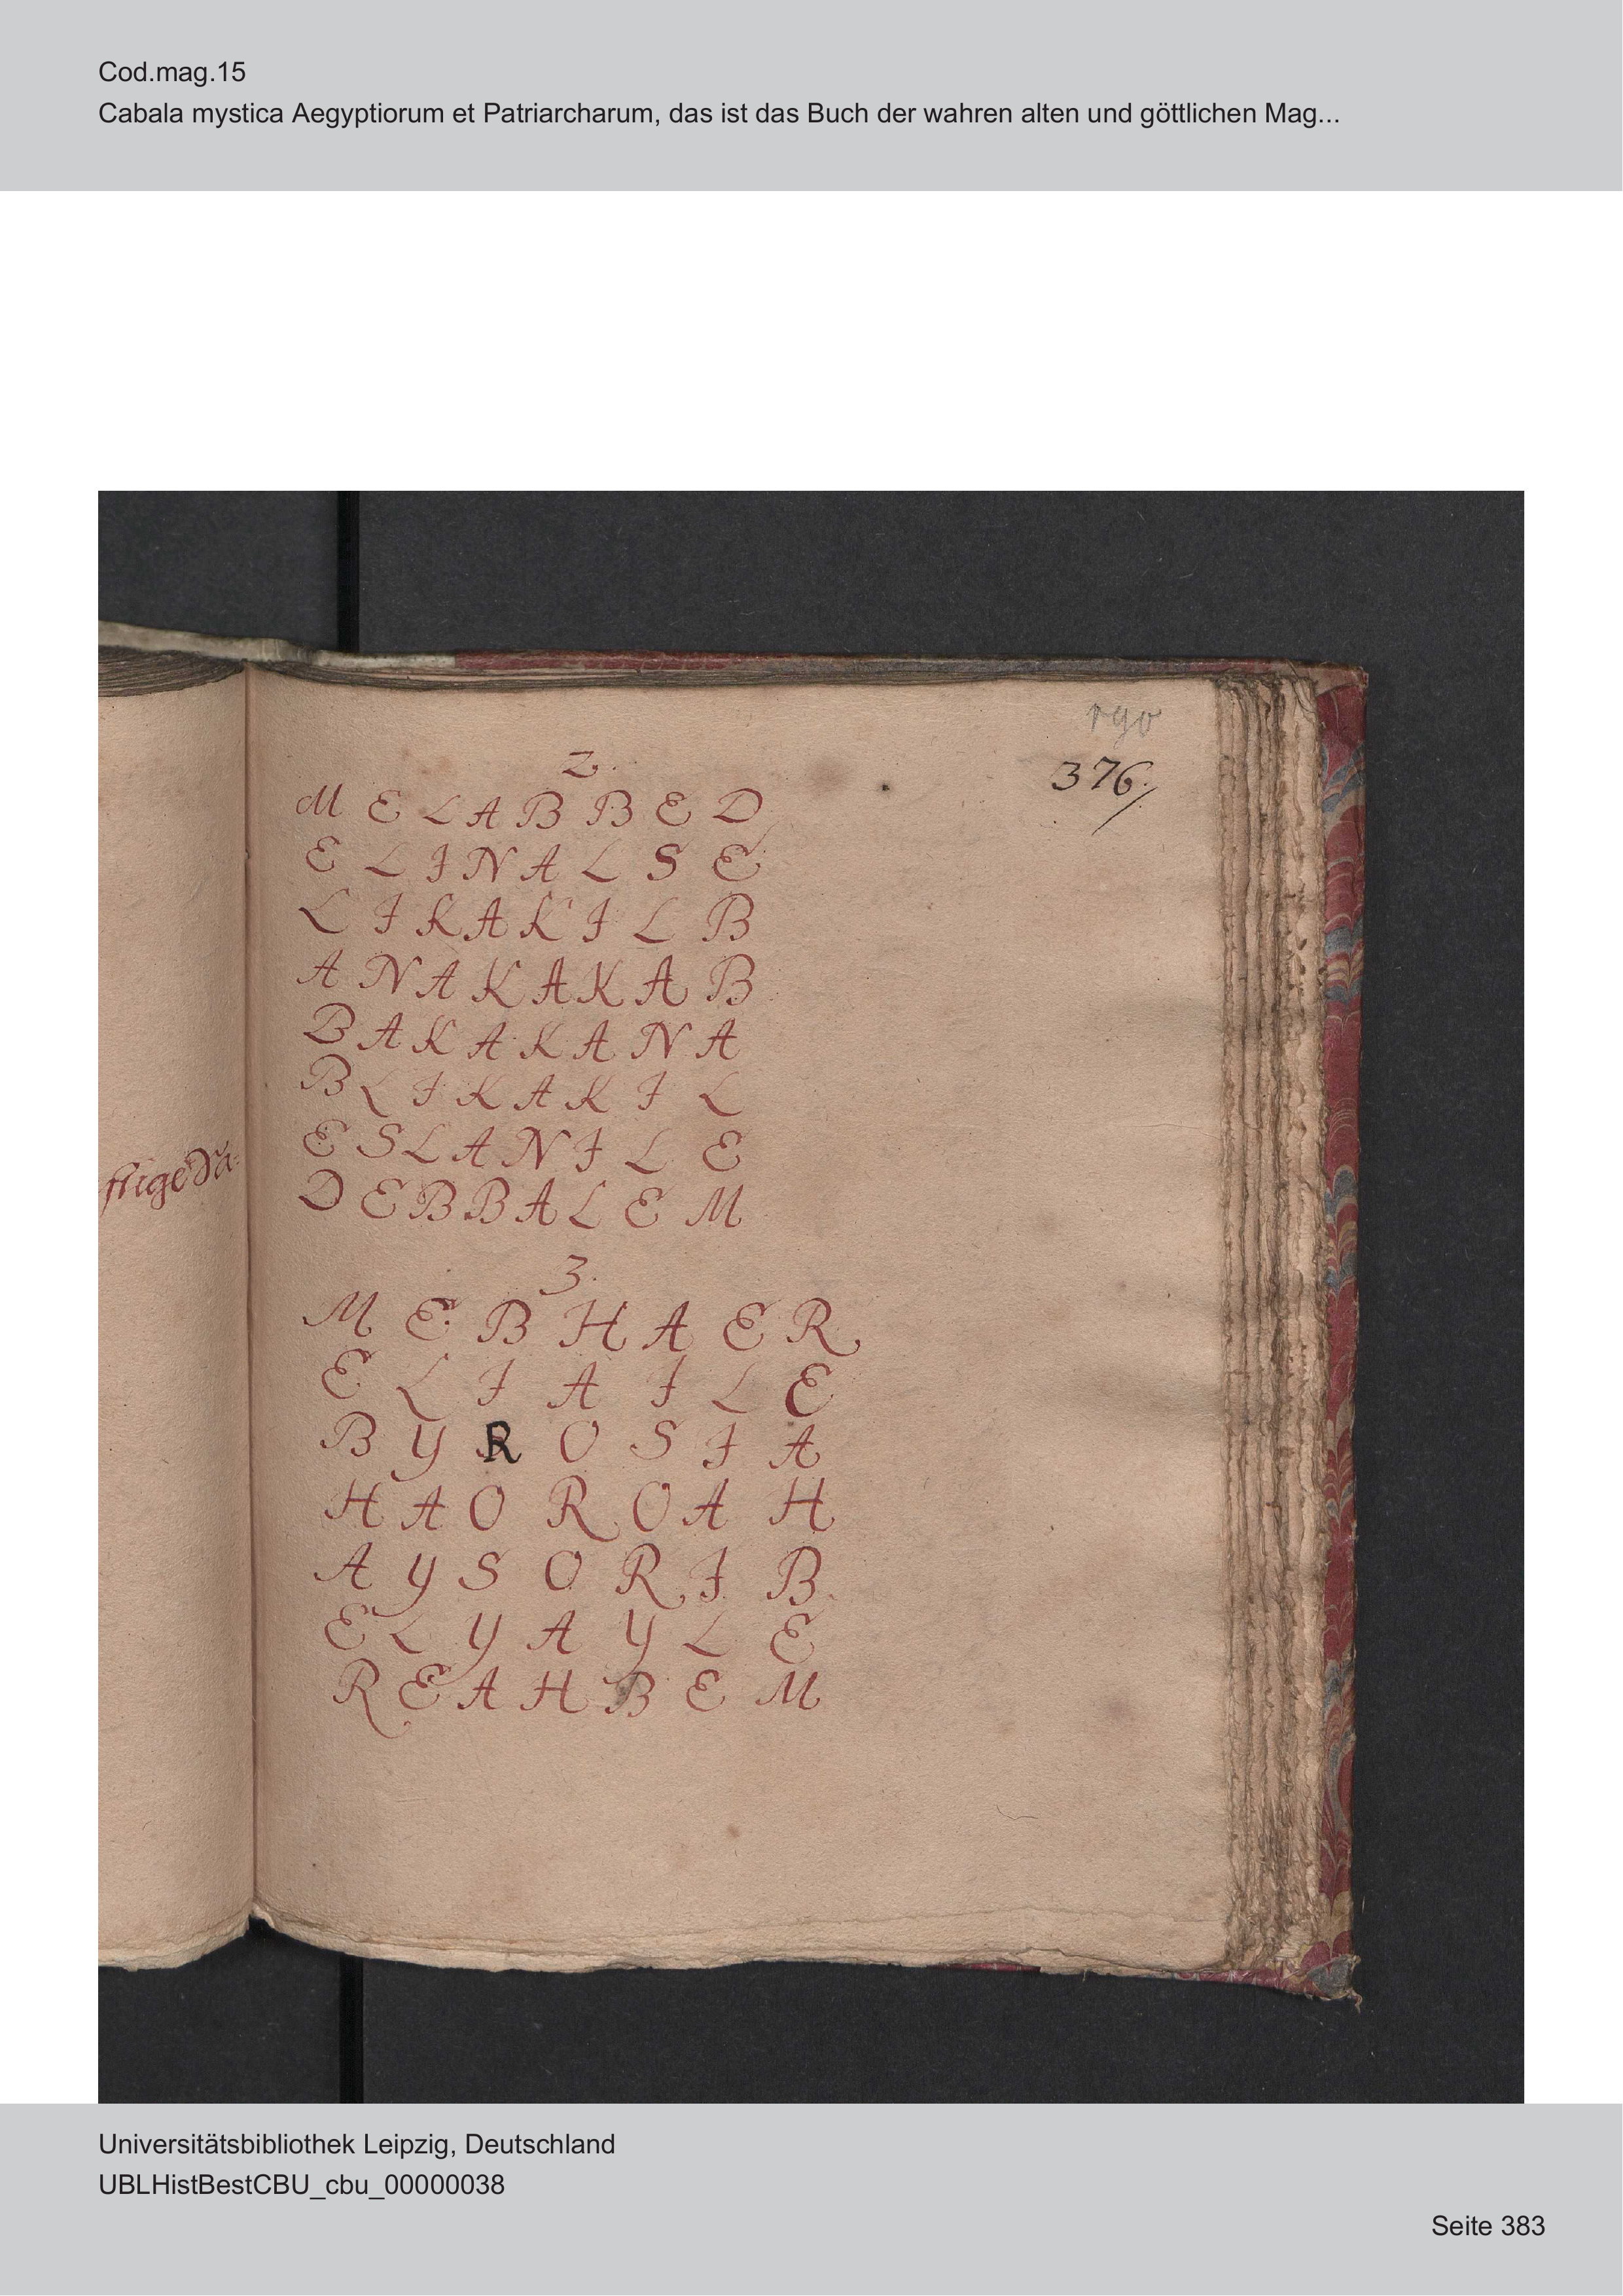 Cod.mag.15
Cabala mystica Aegyptiorum et Patriarcharum, das ist das Buch der wahren alten und göttlichen Mag...
190
376
2.
M E L A B B E D
E L I N A L S E
L I K A K I L B
A N A K A K A B
B A K A K A N A
B L I K A K I L
E S L A N I L E
D E B B A L E M
3.
M E B H A E R
E L I A I L E
B Y R O S I A
H A O R O A H
A Y S O R I B
E L Y A Y L E
R E A H B E M
Universitätsbibliothek Leipzig, Deutschland
UBLHistBestCBU_cbu_00000038
Seite 383